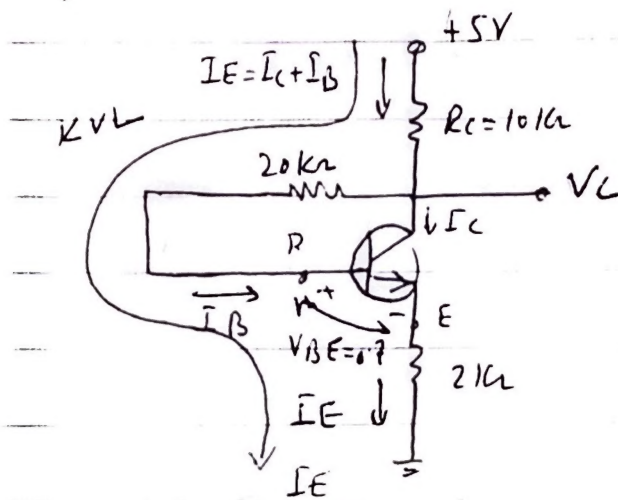 +5V
IE = IC + IB
KVL
RC = 10KΩ
20KΩ
VC
IC
B
+
IB
- E
VBE = 0.7
2KΩ
IE
IE